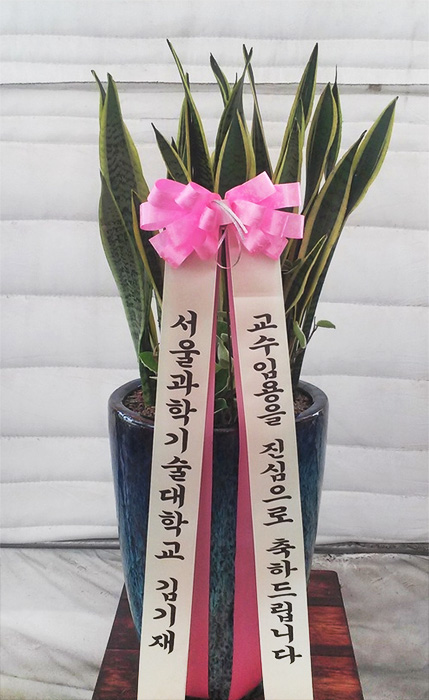 교수임용을 진심으로 축하드립니다
서울과학기술대학교 김기재